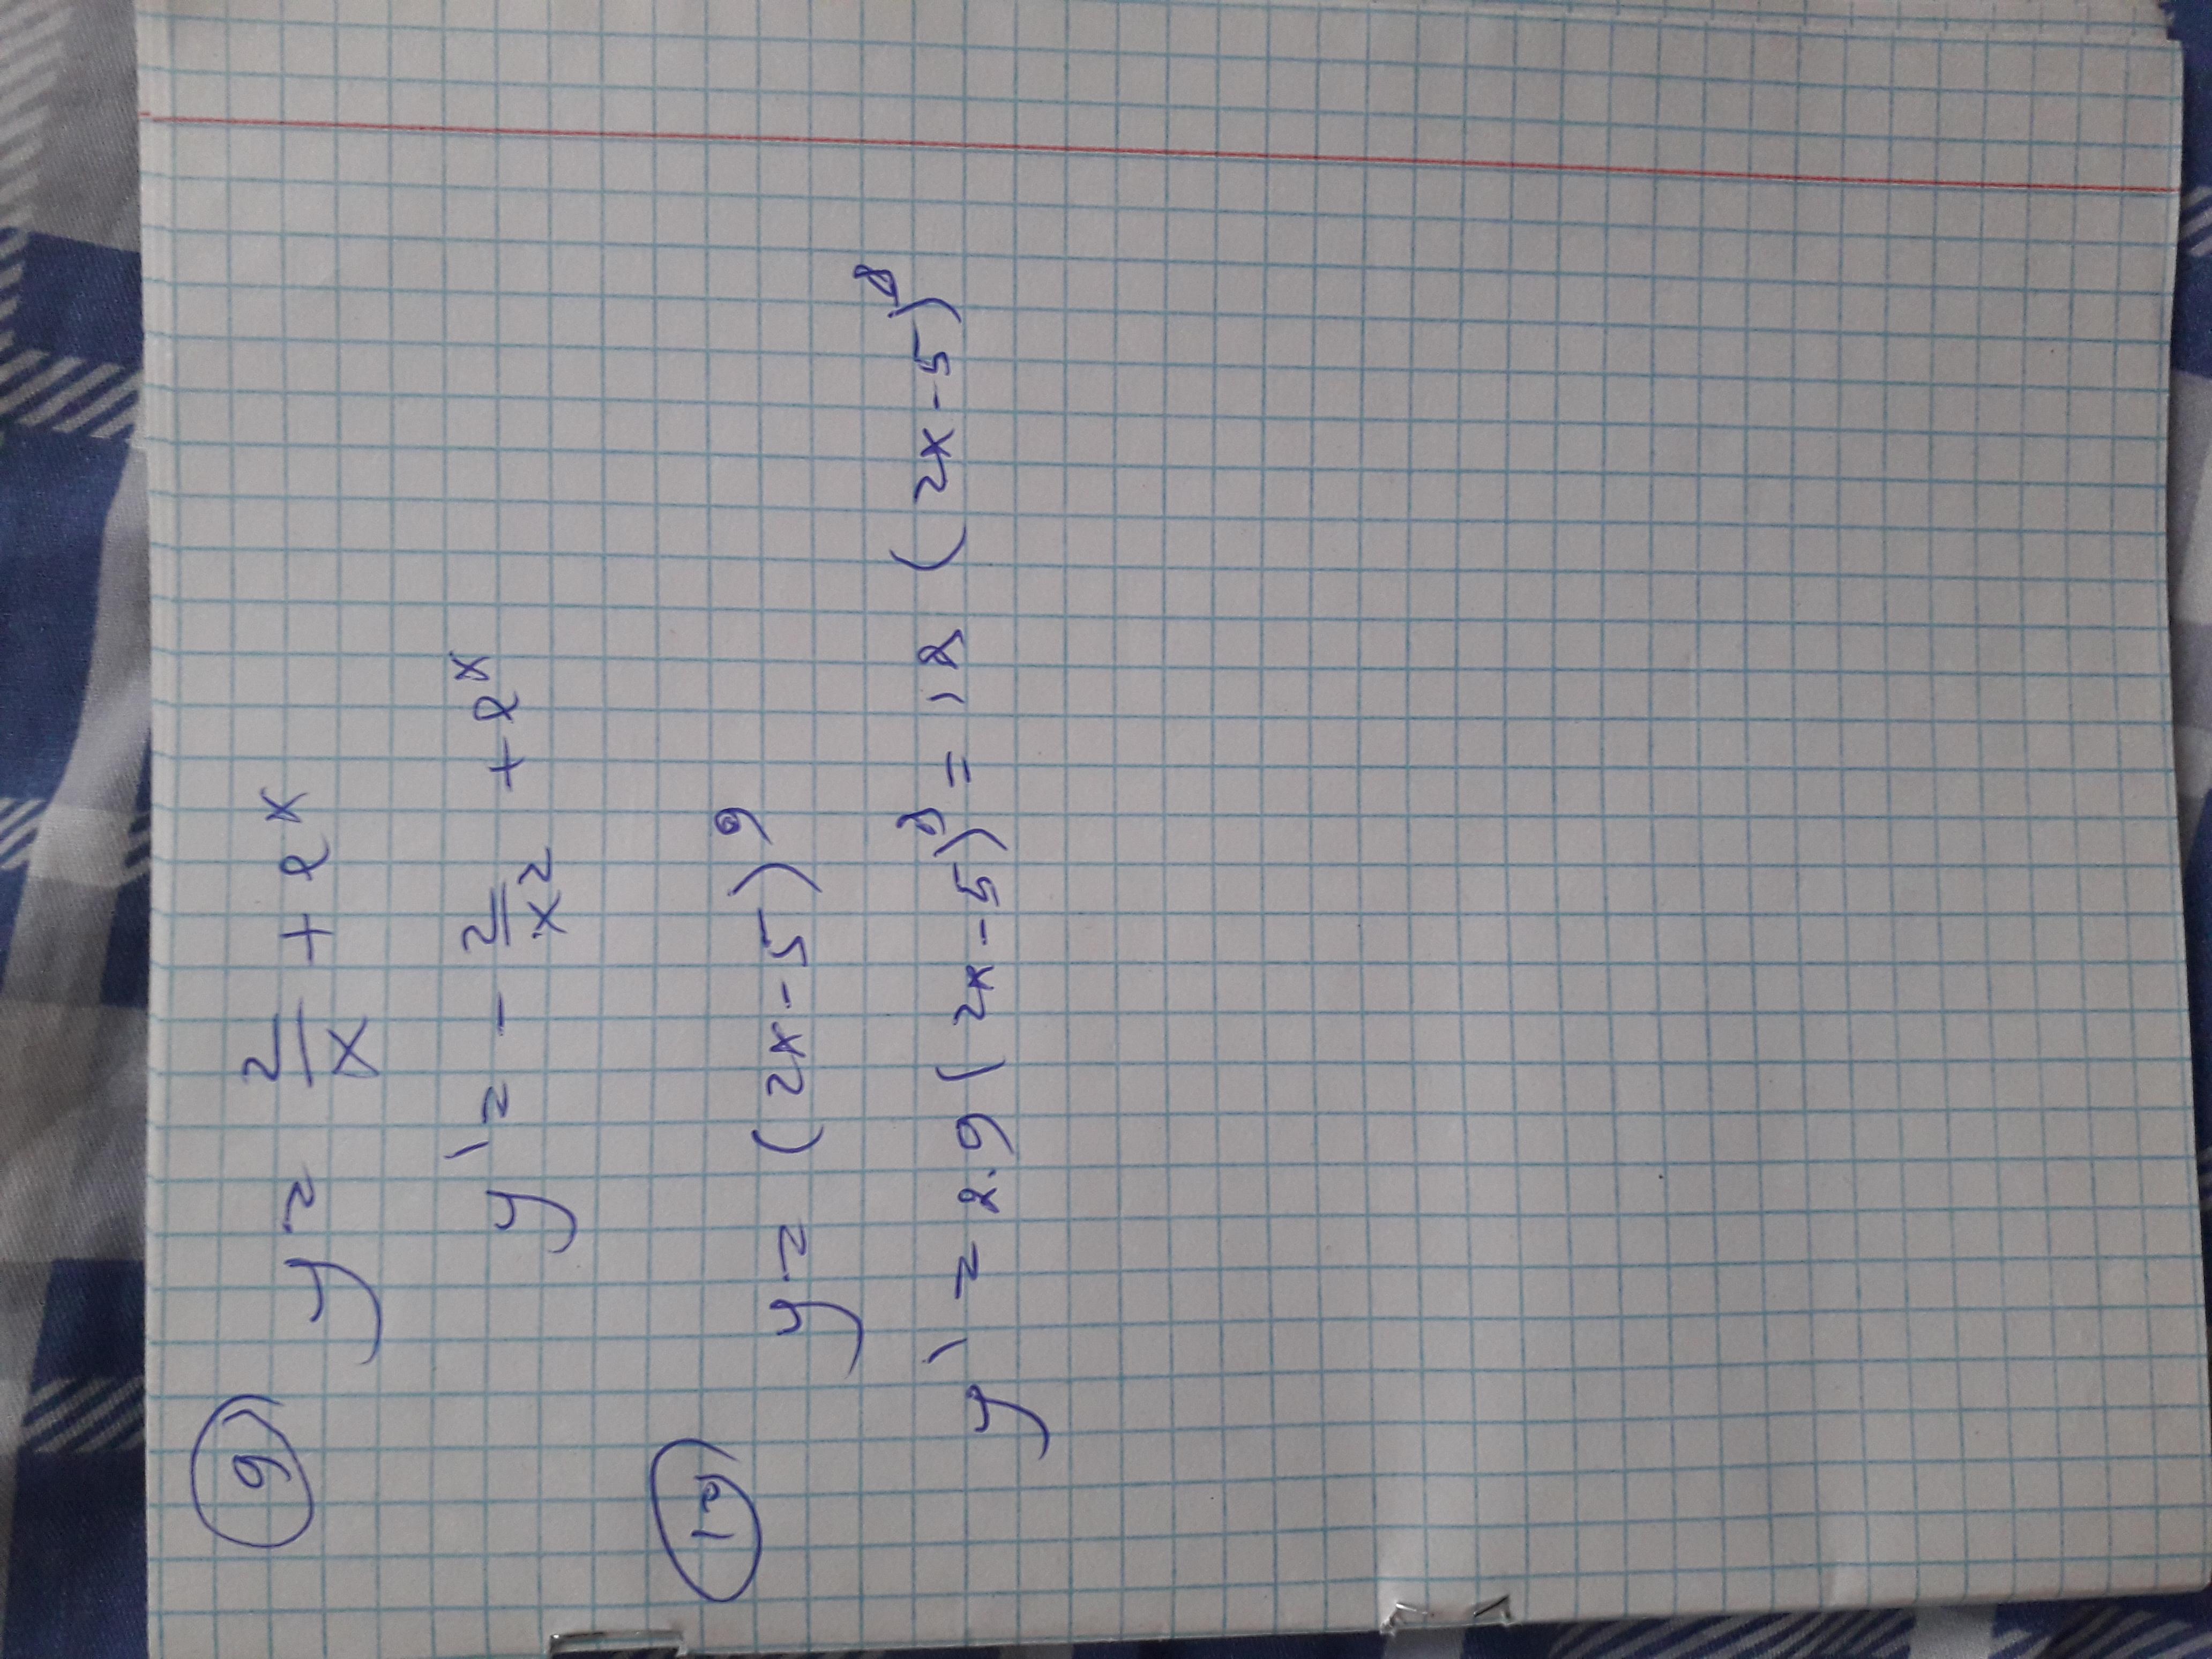 9) y = 2/x + e^x
y' = - 2/x^2 + e^x
19) y = (2x-5)^9
y' = 2·9(2x-5)^8 = 18 (2x-5)^8